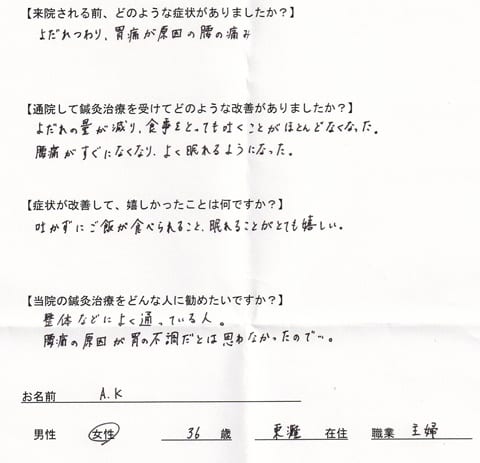 【来院される前、どのような症状がありましたか？】
よだれつわり、胃痛が原因の腰の痛み
【通院して鍼灸治療を受けてどのような改善がありましたか？】
よだれの量が減り、食事をとっても吐くことがほとんどなくなった。
腰痛がすぐになくなり、よく眠れるようになった。
【症状が改善して、嬉しかったことは何ですか？】
吐かずにご飯が食べられること、眠れることがとても嬉しい。
【当院の鍼灸治療をどんな人に勧めたいですか？】
整体などによく通っている人。
腰痛の原因が胃の不調だとは思わなかったので…。
お名前 A.K
男性 女性 36 歳 東灘 在住 職業 主婦